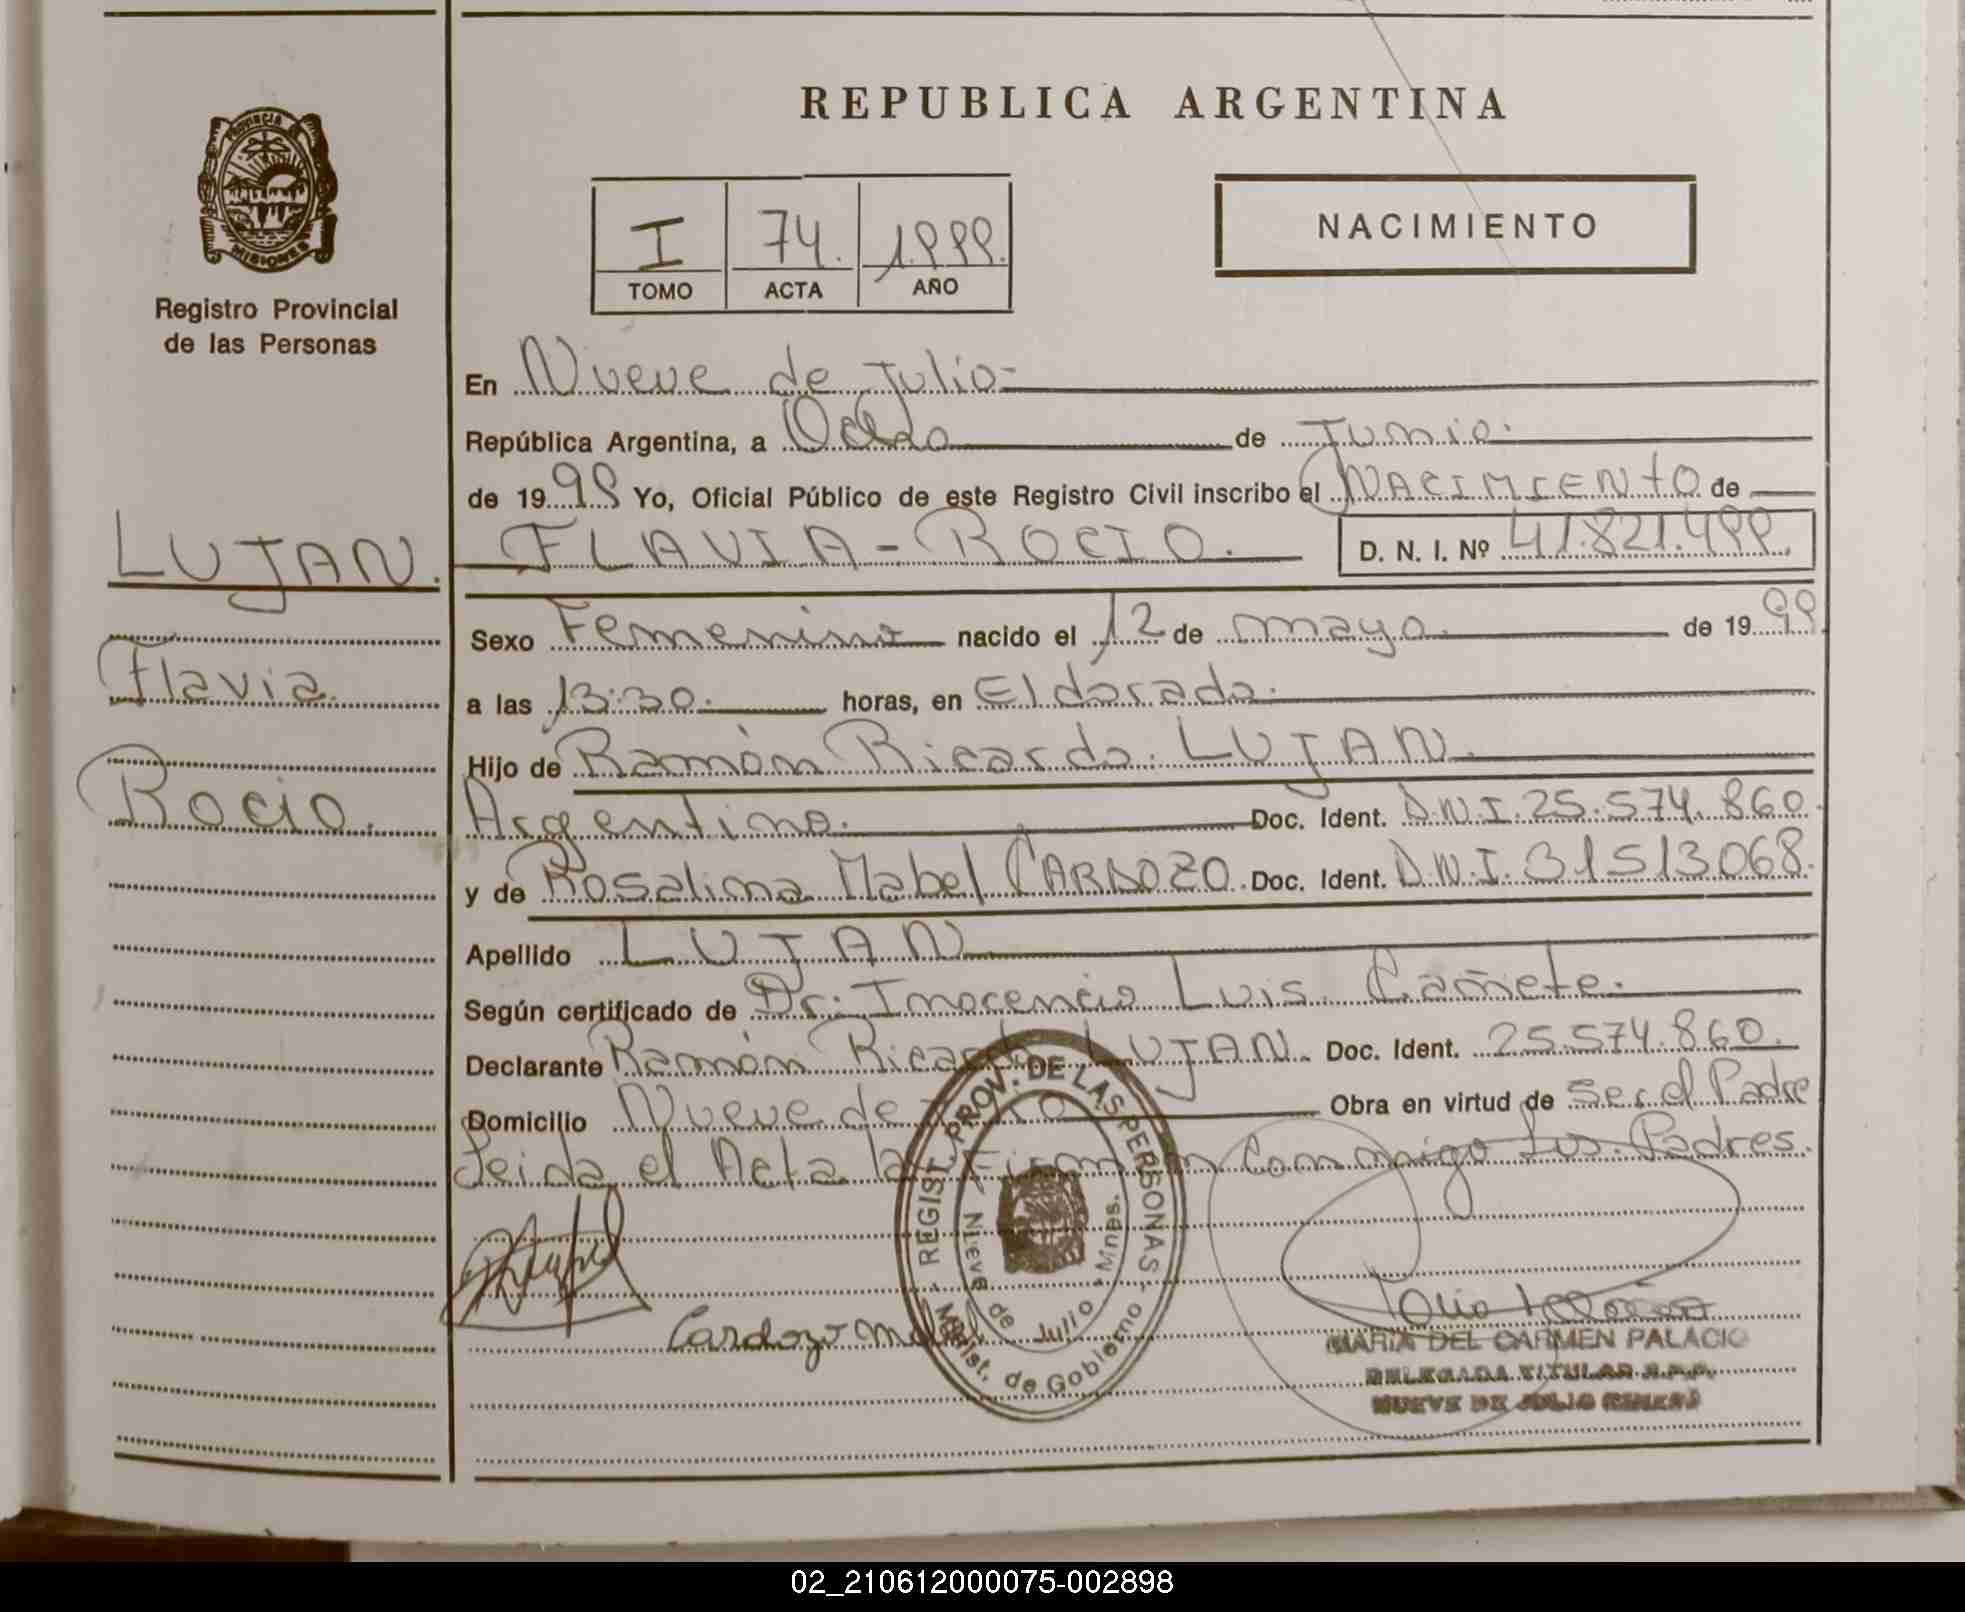 REPUBLICA ARGENTINA
PROVINCIA
MISIONES
Registro Provincial
de las Personas
I 74. 1.999.
TOMO ACTA AÑO
NACIMIENTO
En Nueve de Julio-
República Argentina, a Ocho de Junio.
de 19 99 Yo, Oficial Público de este Registro Civil inscribo el NACIMIENTO de
LUJAN.
FLAVIA-ROCIO. D. N. I. Nº 41.821.499.
Sexo Femenino nacido el 12 de mayo. de 19 99
Flavia.
a las 13:30. horas, en Eldorado.
Hijo de Ramón Ricardo. LUJAN.
Rocio.
Argentino. Doc. Ident. D.N.I. 25.574.860.
y de Rosalina Mabel CARDOZO. Doc. Ident. D.N.I. 31513068.
Apellido LUJAN
Según certificado de Dr. Inocencio Luis Cañete.
Declarante Ramón Ricardo LUJAN. Doc. Ident. 25.574.860.
Domicilio Nueve de Julio Obra en virtud de ser el Padre
Leida el Acta la Firman conmigo sus Padres.
REGIST. PROV. DE LAS PERSONAS
Nueve de Julio - Mnes.
Minist. de Gobierno
Cardozo
MARIA DEL CARMEN PALACIO
DELEGADA TITULAR R.P.P.
NUEVE DE JULIO
02_210612000075-002898